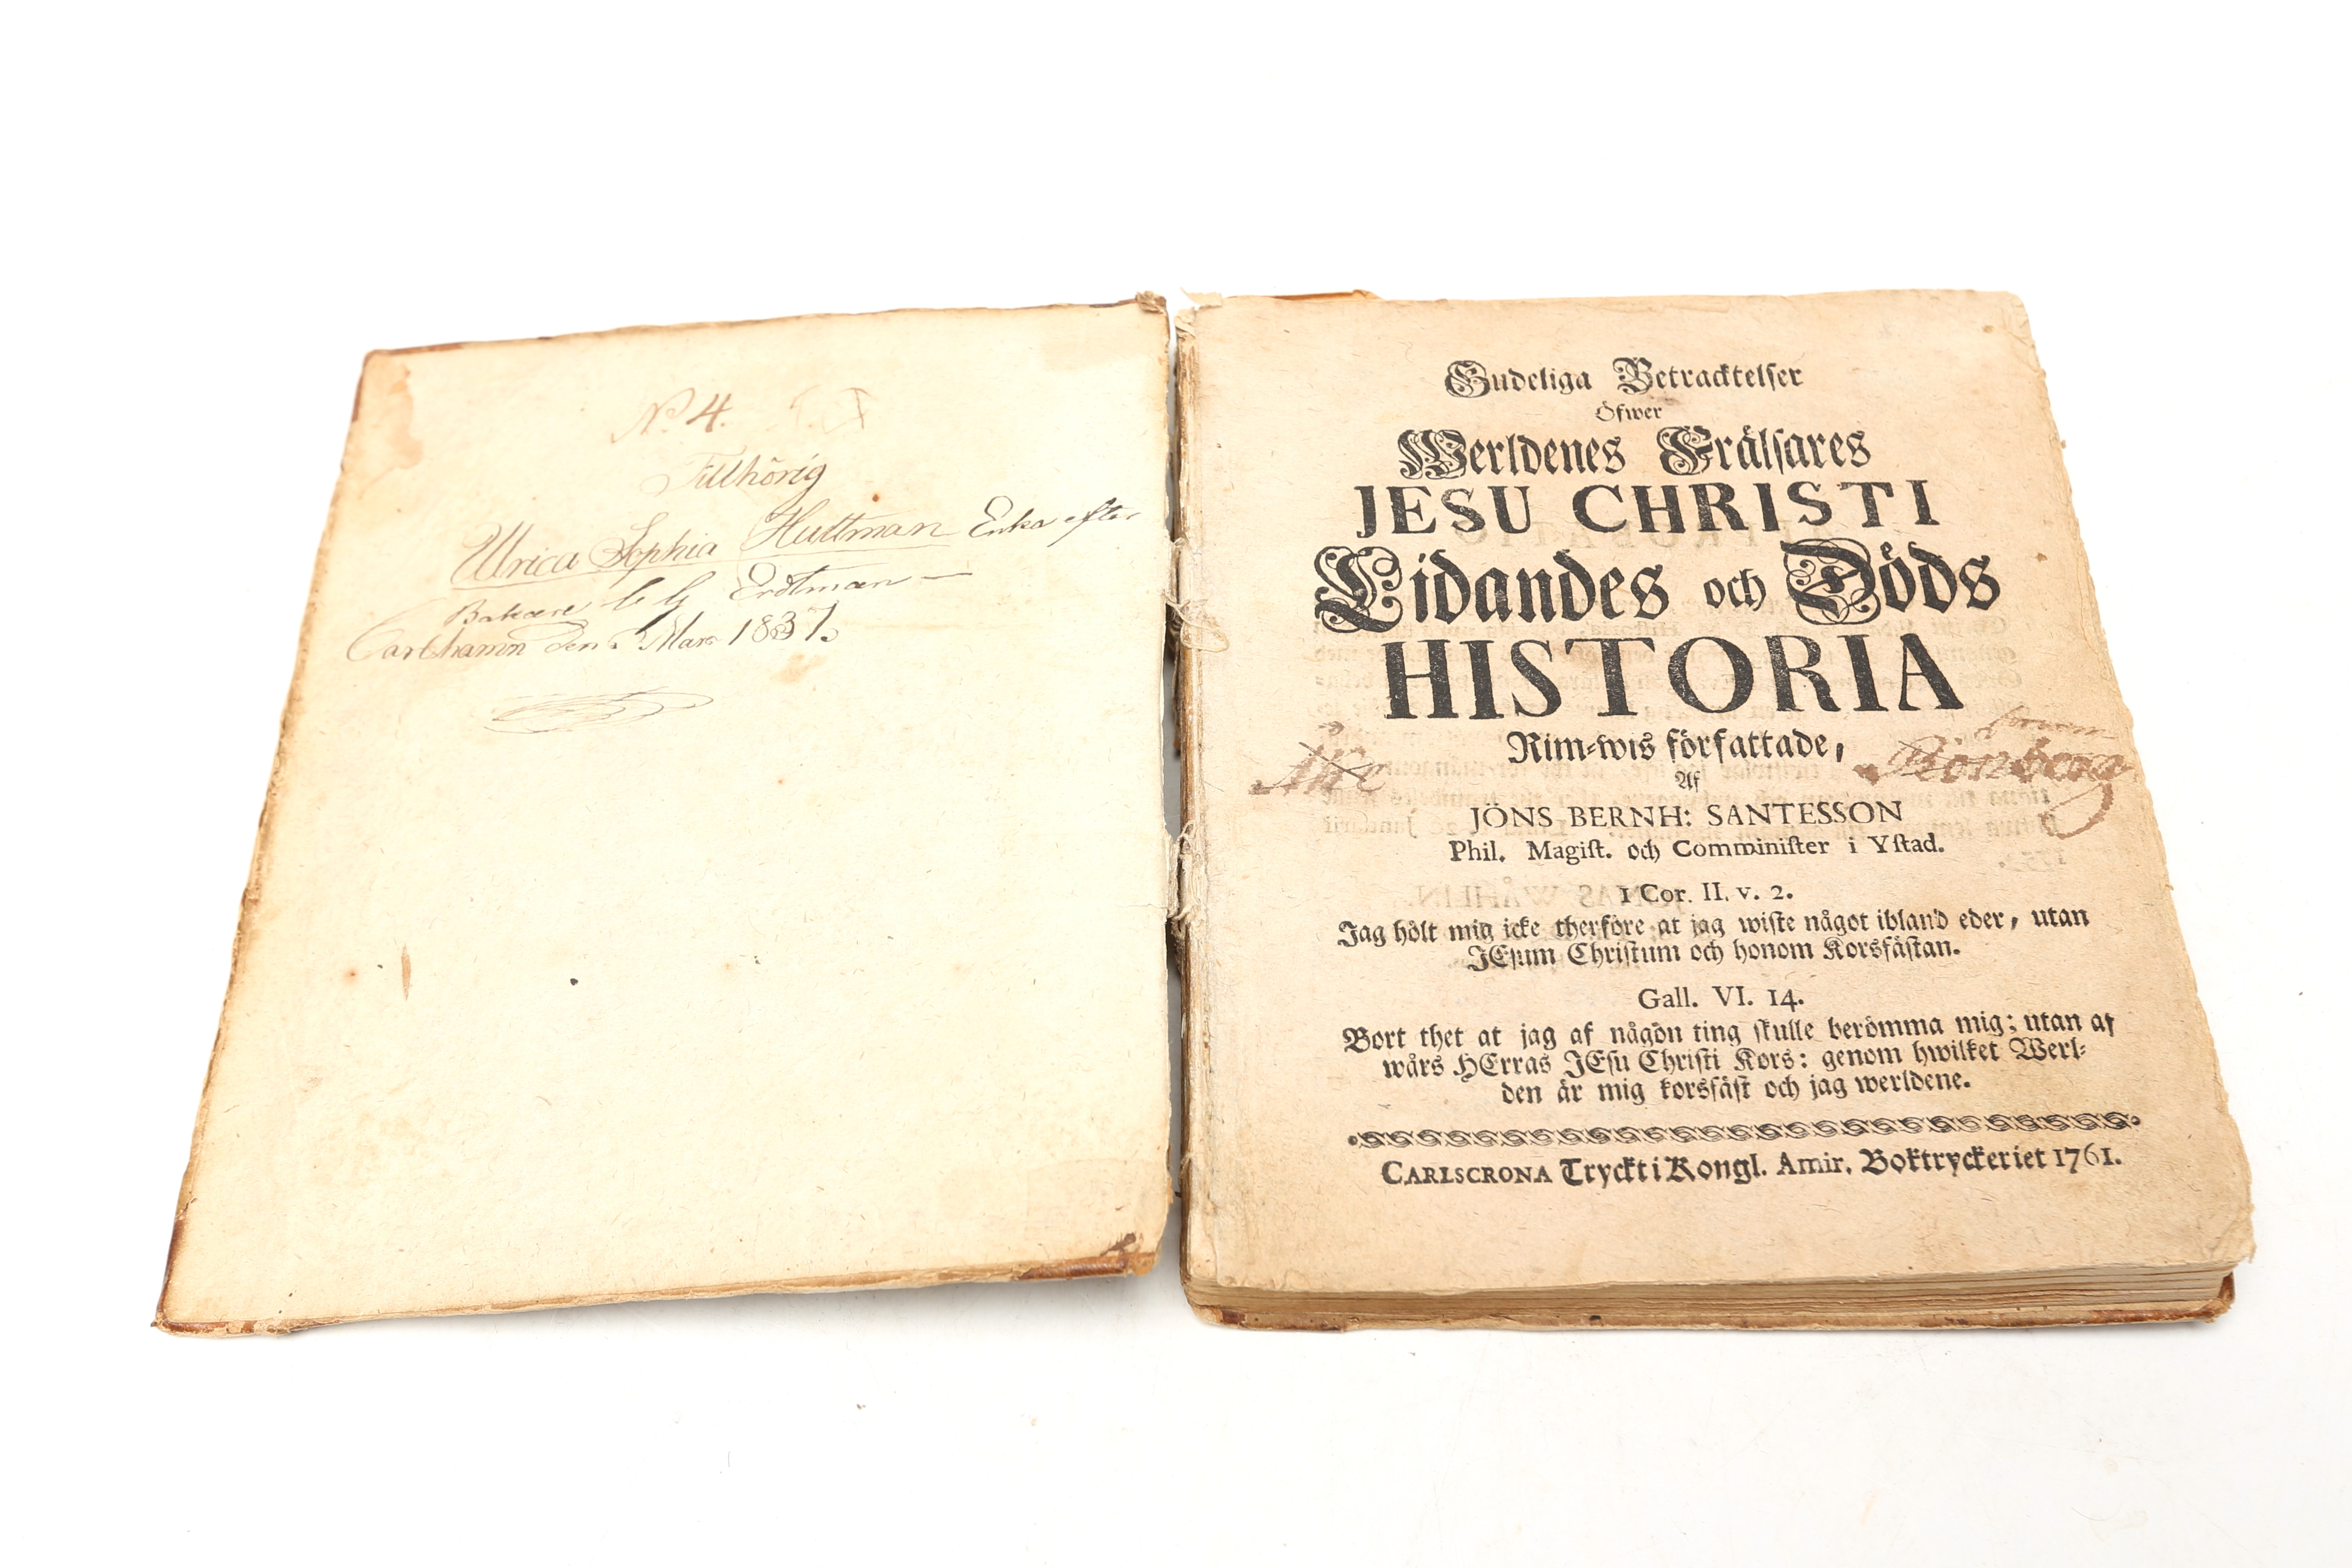 No. 4.
Tillhörig
Ulrica Sophia Huttman Enka efter
Bakare C G Erdtman —
Carlshamn den 2 Mars 1837.
Gudeliga Betracktelser
Öfwer
Werldenes Frälsares
JESU CHRISTI
Lidandes och Döds
HISTORIA
Rim-wis författade,
Af
Rönberg
JÖNS BERNH: SANTESSON
Phil. Magiſt. och Comminiſter i Yſtad.
1 Cor. II. v. 2.
Jag hölt mig icke therföre at jag wiſte något ibland eder, utan
JEſum Chriſtum och honom Korsfäſtan.
Gall. VI. 14.
Bort thet at jag af någon ting ſkulle berömma mig; utan af
wårs HErras JEſu Chriſti Kors: genom hwilket Werl-
den är mig korsfäſt och jag werldene.
CARLSCRONA Tryckt i Kongl. Amir. Boktryckeriet 1761.